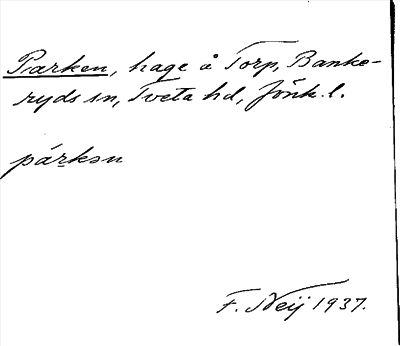 Parken, hage å Torp, Banke-
ryds sn, Tveta hd, Jönk. l.
párkən
F. Neij 1937.